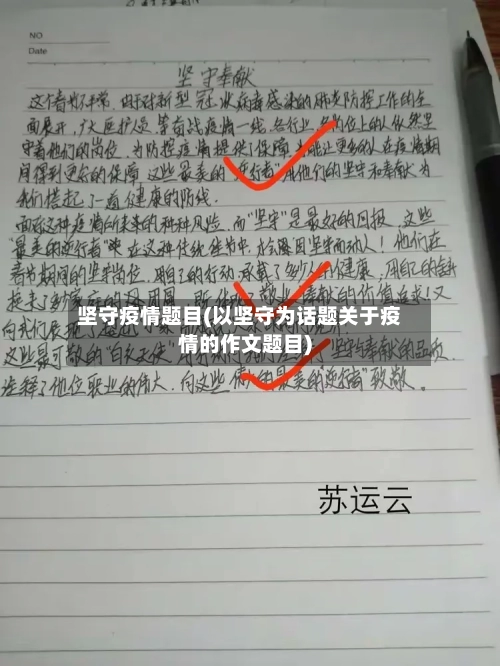 NO
Date
坚守奉献
这个春节不平常,由于对新型冠状病毒感染的肺炎防控工作的全
面展开,广大医护人员等奋战疫情一线,各行业、各岗位上的人依然坚
守着他们的岗位,为防控疫情提供了保障,为能让更多的人在疫情期
间得到更多的保障,这些最美的"逆行者"用他们的坚守和奉献为
我们搭起了一道健康的防线。
面对这种疫情所带来的种种风险,而"坚守"是最好的回报,这些
"最美的逆行者"在这种传统佳节中,
春节期间的坚守岗位,用自己的行动,承载了多少人的健康,用自己的
换来了
向我们展现了
坚守疫情题目(以坚守为话题关于疫
情的作文题目)
这些最可敬的"白衣天使"坚守与奉献的品质,
诠释了他位职业的伟大,向这些最美的"逆行者"致敬。
苏运云